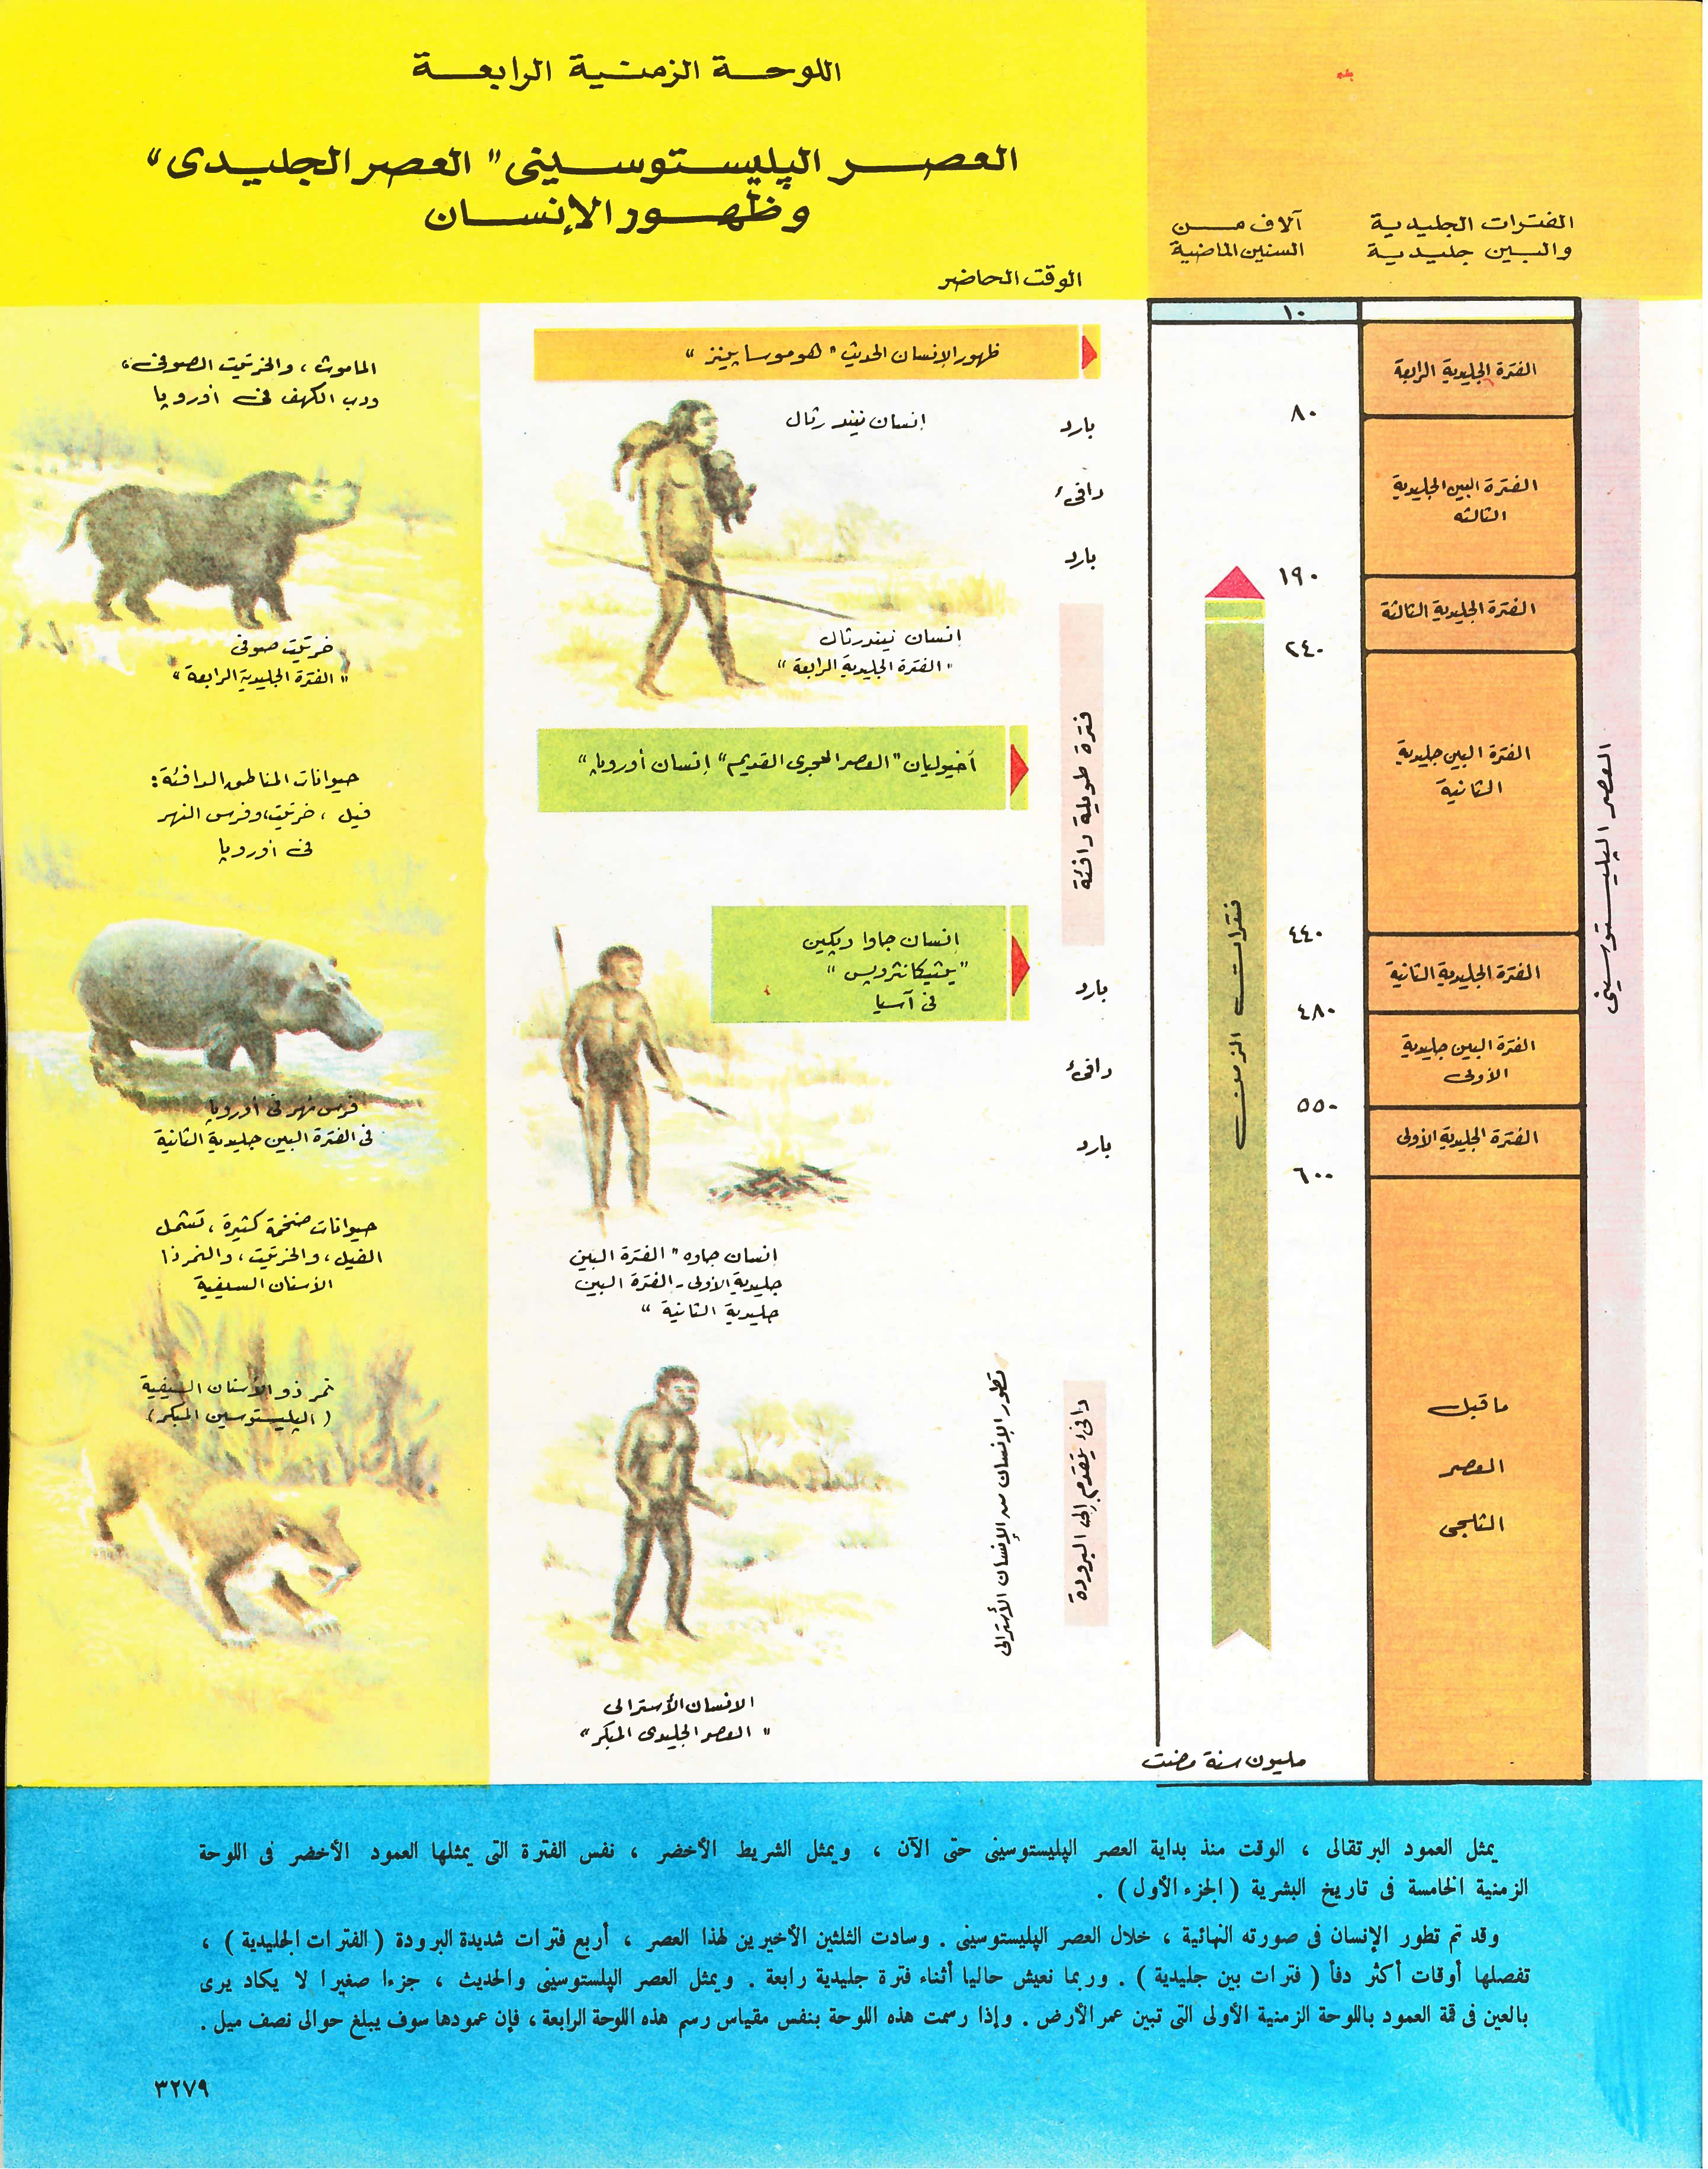 اللوحة الزمنية الرابعة
العصر الپليستوسينى "العصر الجليدى"
وظهور الإنسان
الفترات الجليدية
والبين جليدية
آلاف من
السنين الماضية
الوقت الحاضر
١٠
الفترة الجليدية الرابعة
٨٠
الفترة البين الجليدية
الثالثه
١٩٠
الفترة الجليدية الثالثة
٢٤٠
الفترة البين جليدية
الثانية
٤٤٠
الفترة الجليدية الثانية
٤٨٠
الفترة البين جليدية
الأولى
٥٥٠
الفترة الجليدية الأولى
٦٠٠
ما قبل
العصر
الثلجى
مليون سنة مضت
العصر الپليستوسينى
فترات الزمن
بارد
دافئ
بارد
فترة طويلة دافئة
بارد
دافئ
بارد
دافئ يتقدم إلى البرودة
تطور الإنسان من الإنسان الأسترالى
ظهور الإنسان الحديث "هوموساپينز"
إنسان نيندرثال
إنسان نيندرثال
"الفترة الجليدية الرابعة"
أخيوليان "العصر الحجرى القديم" إنسان أوروپا"
إنسان جاوا وپكين
"پيثيكانثروپس"
فى آسيا
إنسان جاوه "الفترة البين
جليدية الأولى - الفترة البين
جليدية الثانية"
الانسان الأسترالى
"العصر الجليدى المبكر"
الماموث ، والخرتيت الصوفى ،
ودب الكهف فى أوروپا
خرتيت صوفى
"الفترة الجليدية الرابعة"
حيوانات المناطق الدافئة :
فيل ، خرتيت، وفرس النهر
فى أوروپا
فرس نهر فى أوروپا
فى الفترة البين جليدية الثانية
حيوانات ضخمة كثيرة ، تشمل
الفيل ، والخرتيت ، والنمر ذا
الأسنان السيفية
نمر ذو الأسنان السيفية
(الپليستوسين المبكر)
يمثل العمود البرتقالى ، الوقت منذ بداية العصر الپليستوسينى حتى الآن ، ويمثل الشريط الأخضر ، نفس الفترة التى يمثلها العمود الأخضر فى اللوحة
الزمنية الخامسة فى تاريخ البشرية ( الجزء الأول ) .
وقد تم تطور الإنسان فى صورته النهائية ، خلال العصر الپليستوسينى . وسادت الثلثين الأخيرين لهذا العصر ، أربع فترات شديدة البرودة ( الفترات الجليدية ) ،
تفصلها أوقات أكثر دفأ ( فترات بين جليدية ) . وربما نعيش حاليا أثناء فترة جليدية رابعة . ويمثل العصر الپلستوسينى والحديث ، جزءا صغيرا لا يكاد يرى
بالعين فى قمة العمود باللوحة الزمنية الأولى التى تبين عمر الأرض . وإذا رسمت هذه اللوحة بنفس مقياس رسم هذه اللوحة الرابعة ، فإن عمودها سوف يبلغ حوالى نصف ميل .
٣٢٧٩